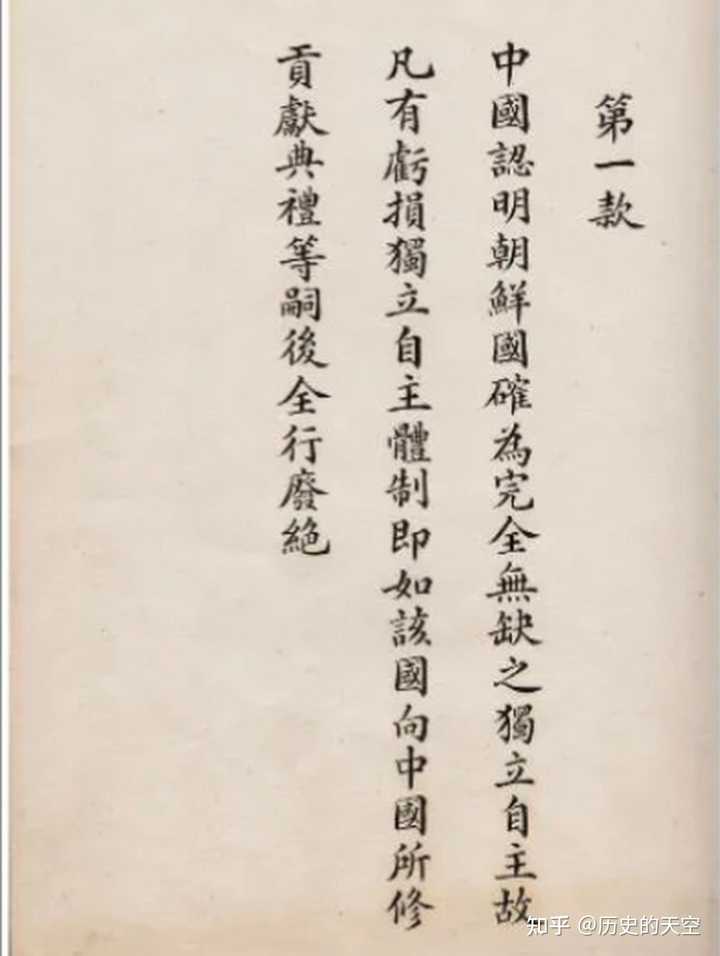 第一款
中國認明朝鮮國確為完全無缺之獨立自主故
凡有虧損獨立自主體制即如該國向中國所修
貢獻典禮等嗣後全行廢絕
知乎 @历史的天空